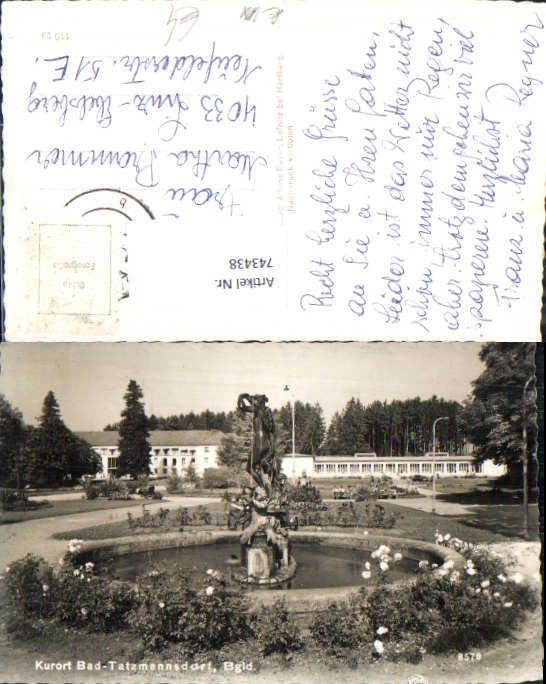 Recht herzliche Grüsse
an Sie u. Ihren Gatten.
Leider ist das Wetter nicht
schön immer nur Regen,
aber trotzdem gehen wir viel
spazieren. Herzlichst
Franz u. Maria Regner
Frau
Martha Brammer
4033 Linz-Ebelsberg
Neufelderstr. 51 E.
Nachdruck verboten
Echte
Fotografie
Artikel Nr.
743438
Kurort Bad-Tatzmannsdorf, Bgld.
8578